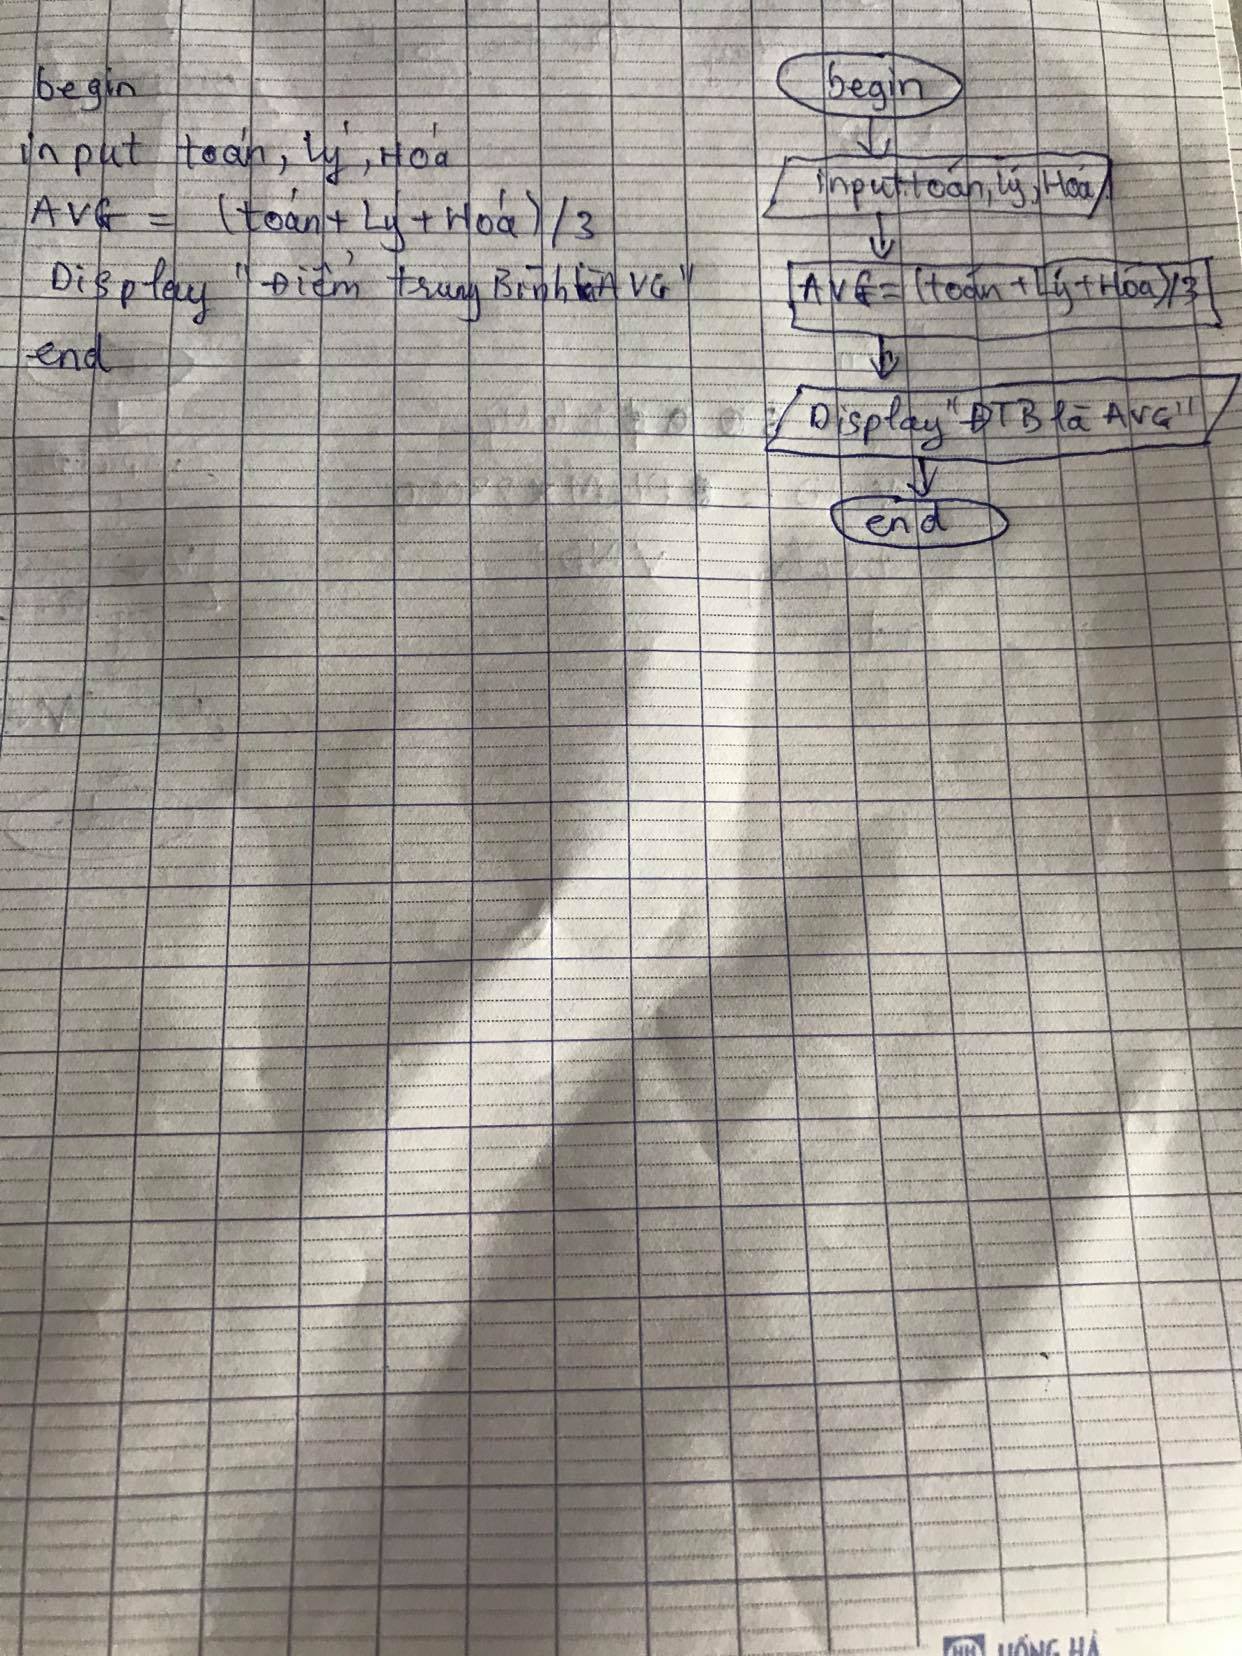 begin
input toán, Lý, Hoá
AVG = (toán + Lý + Hoá) / 3
Display "Điểm trung Bình là AVG"
end
begin
input toán, lý, Hoá
AVG = (toán + Lý + Hóa) / 3
Display "ĐTB là AVG"
end
HH HỒNG HÀ